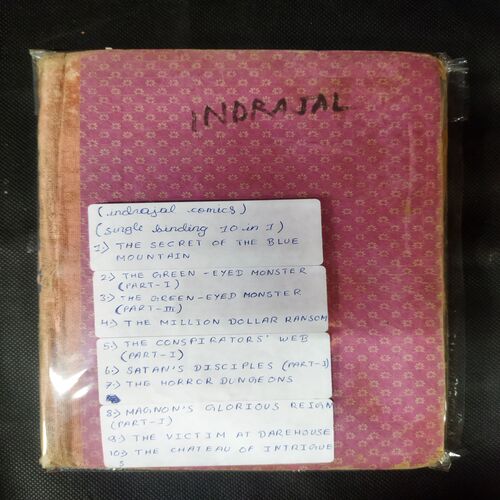 INDRAJAL
(indrajal comics)
(single binding 10 in 1)
1) THE SECRET OF THE BLUE
MOUNTAIN
2) THE GREEN-EYED MONSTER
(PART-I)
3) THE GREEN-EYED MONSTER
(PART-III)
4) THE MILLION DOLLAR RANSOM
5) THE CONSPIRATORS' WEB
(PART-I)
6) SATAN'S DISCIPLES (PART-I)
7) THE HORROR DUNGEONS
8) MAGNON'S GLORIOUS REIGN
(PART-I)
9) THE VICTIM AT DAREHOUSE
10) THE CHATEAU OF INTRIGUE